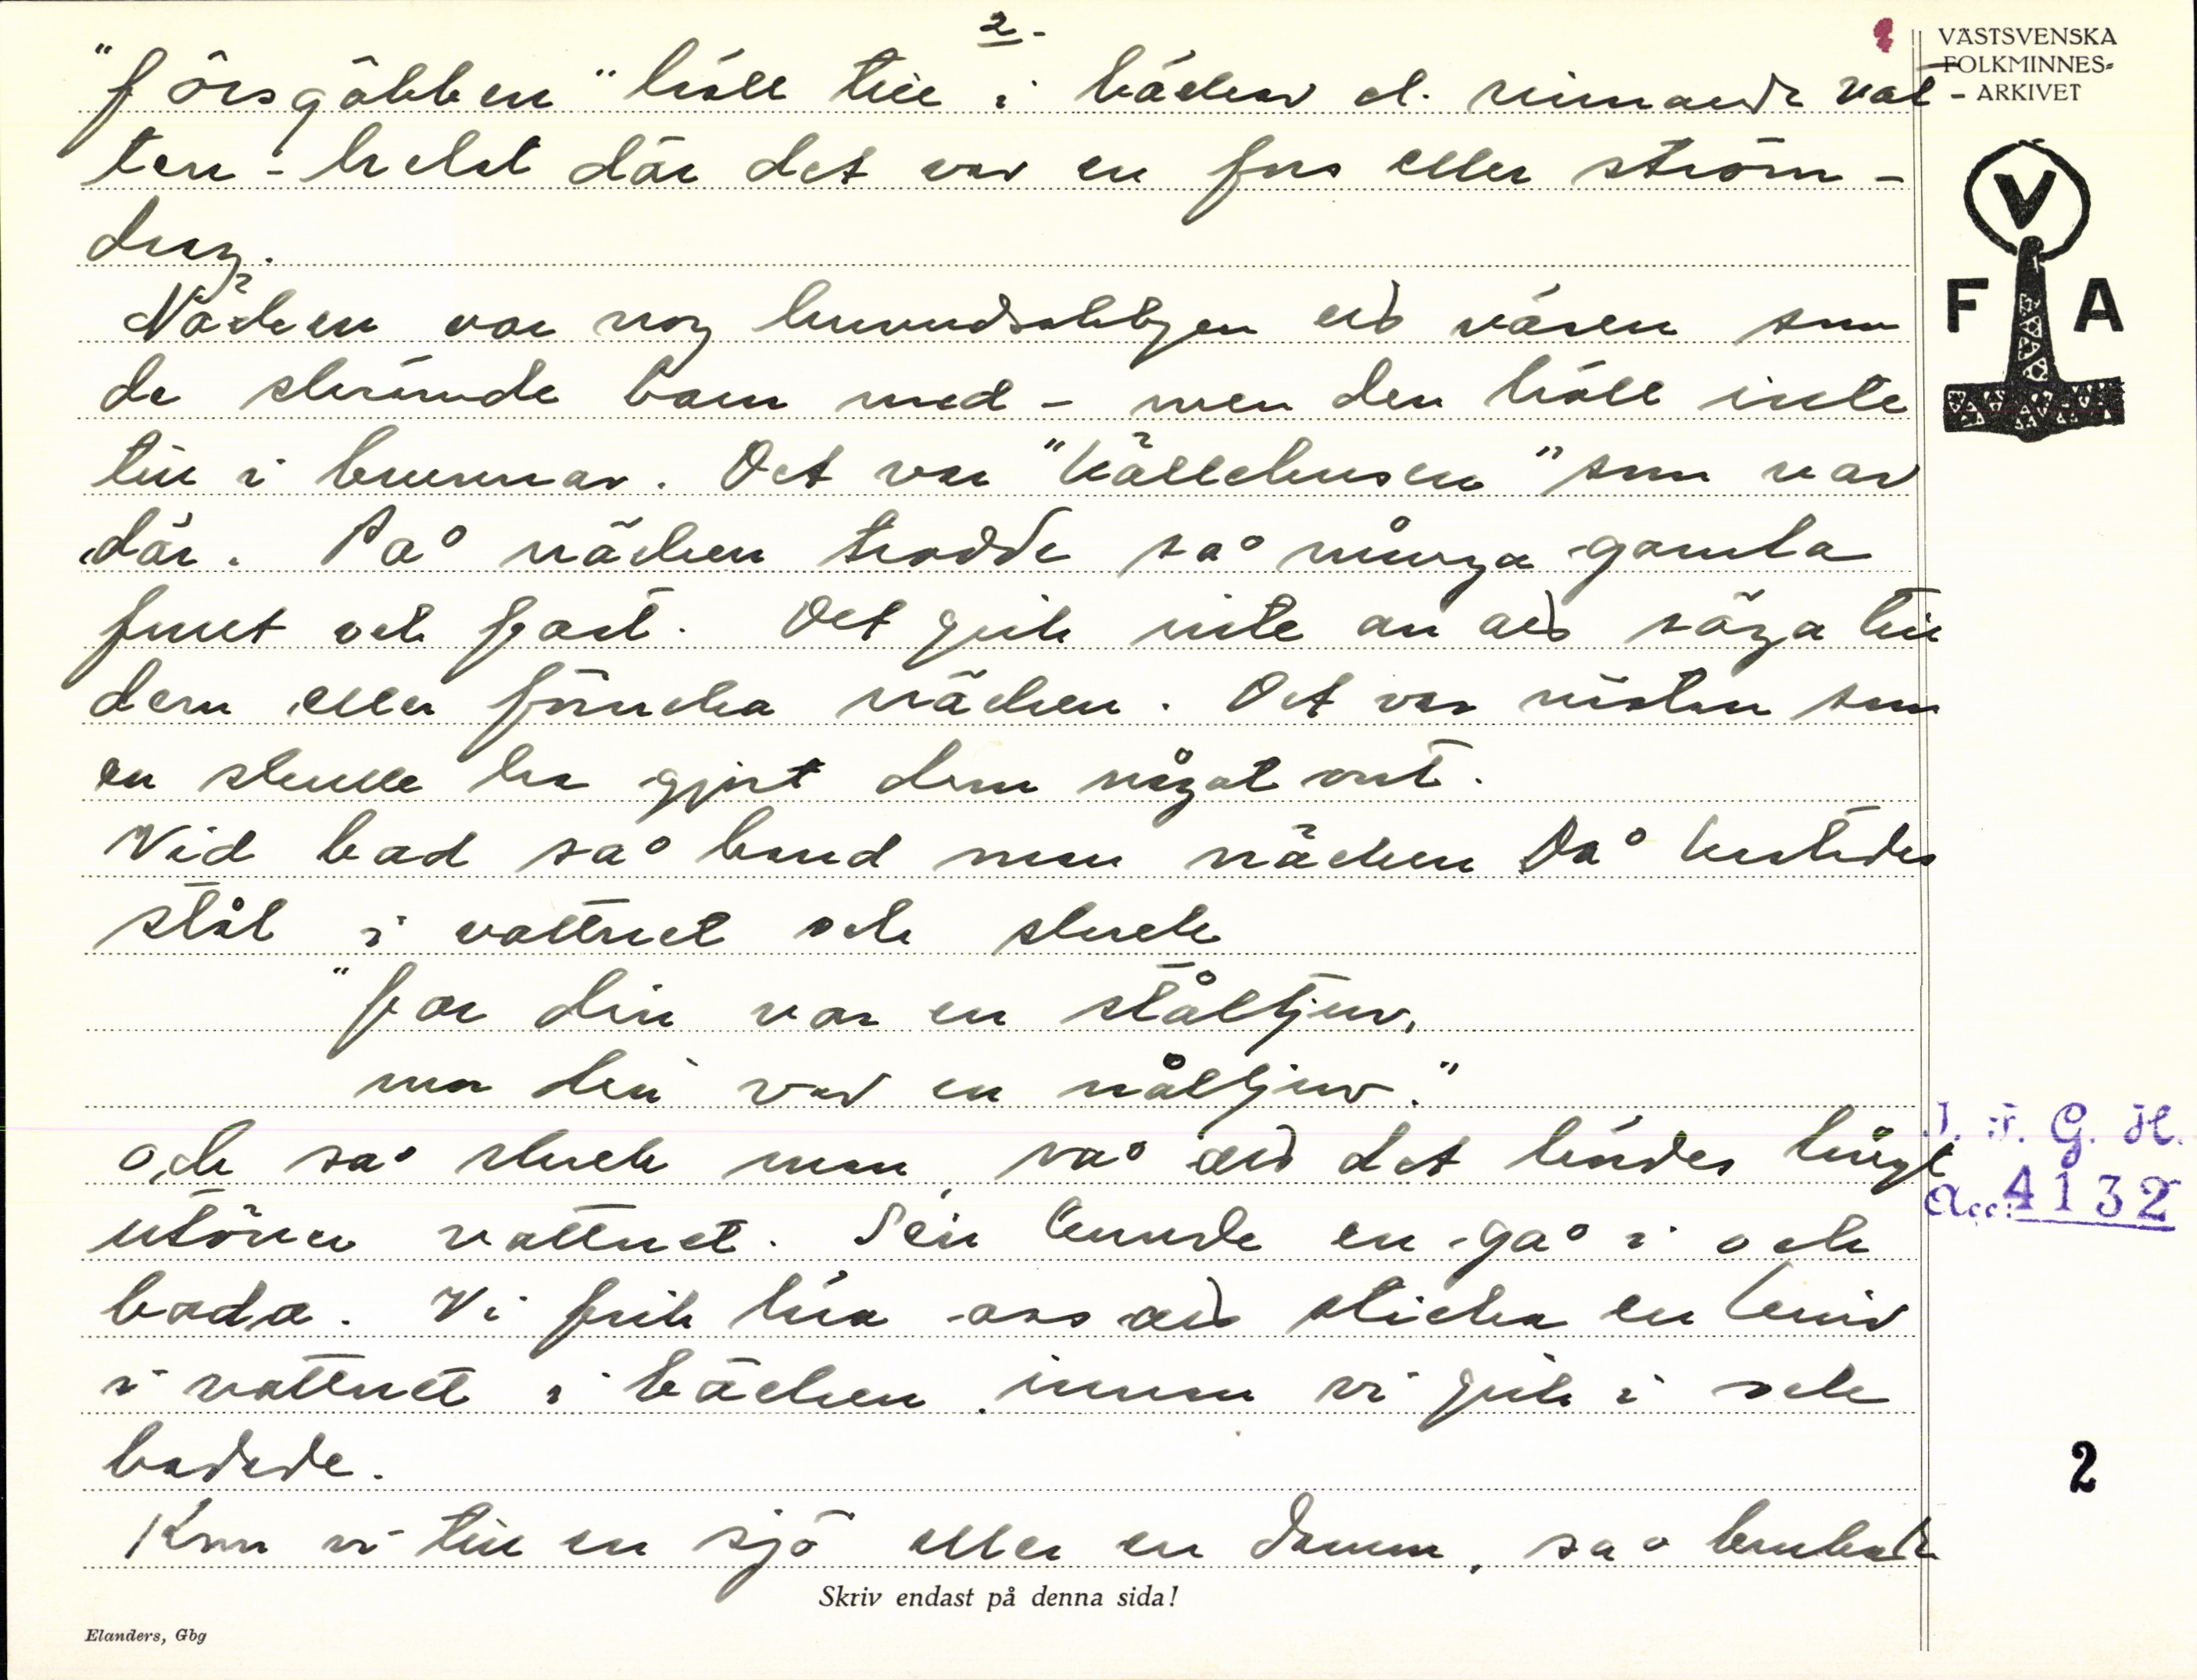 2-
"forsgobben" höll till i bäckar el. rinnande vat-
ten - helst där det var en fors eller ström-
drag.
Näcken var nog huvudsakligen ett väsen som
de skrämde barn med - men den höll inte
till i brunnar. Det var "källebusen" som var
där. På näcken trodde så många gamla
fullt och fast. Det gick inte an att säga till
dem eller förneka näcken. Det var nästan som
en skulle ha gjort dem något ont.
Vid bad så band man näcken Då kastades
stål i vattnet och skrek
"far din var en ståltjuv,
mor din var en nåltjuv."
och så skrek man så att det hördes långt
utöver vattnet. Sen kunde en gå i och
bada. Vi fick lära oss att sticka en kniv
i vattnet i bäcken innan vi gick i och
badade.
Kom vi till en sjö eller en damm, så brukade
Skriv endast på denna sida!
Elanders, Gbg
VÄSTSVENSKA
FOLKMINNES-
ARKIVET
V
F A
I. F. G. H.
Acc. 4132
2